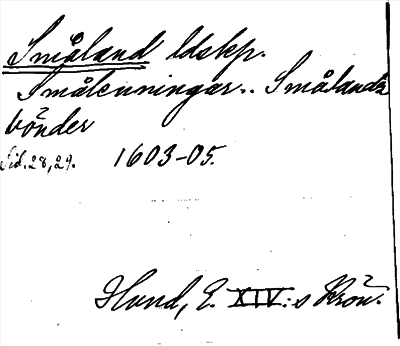 Småland ldskp.
Smålenningar.. Smålands
bönder
Sid. 28, 29. 1603-05.
Hund, E. XIV:s Krön.